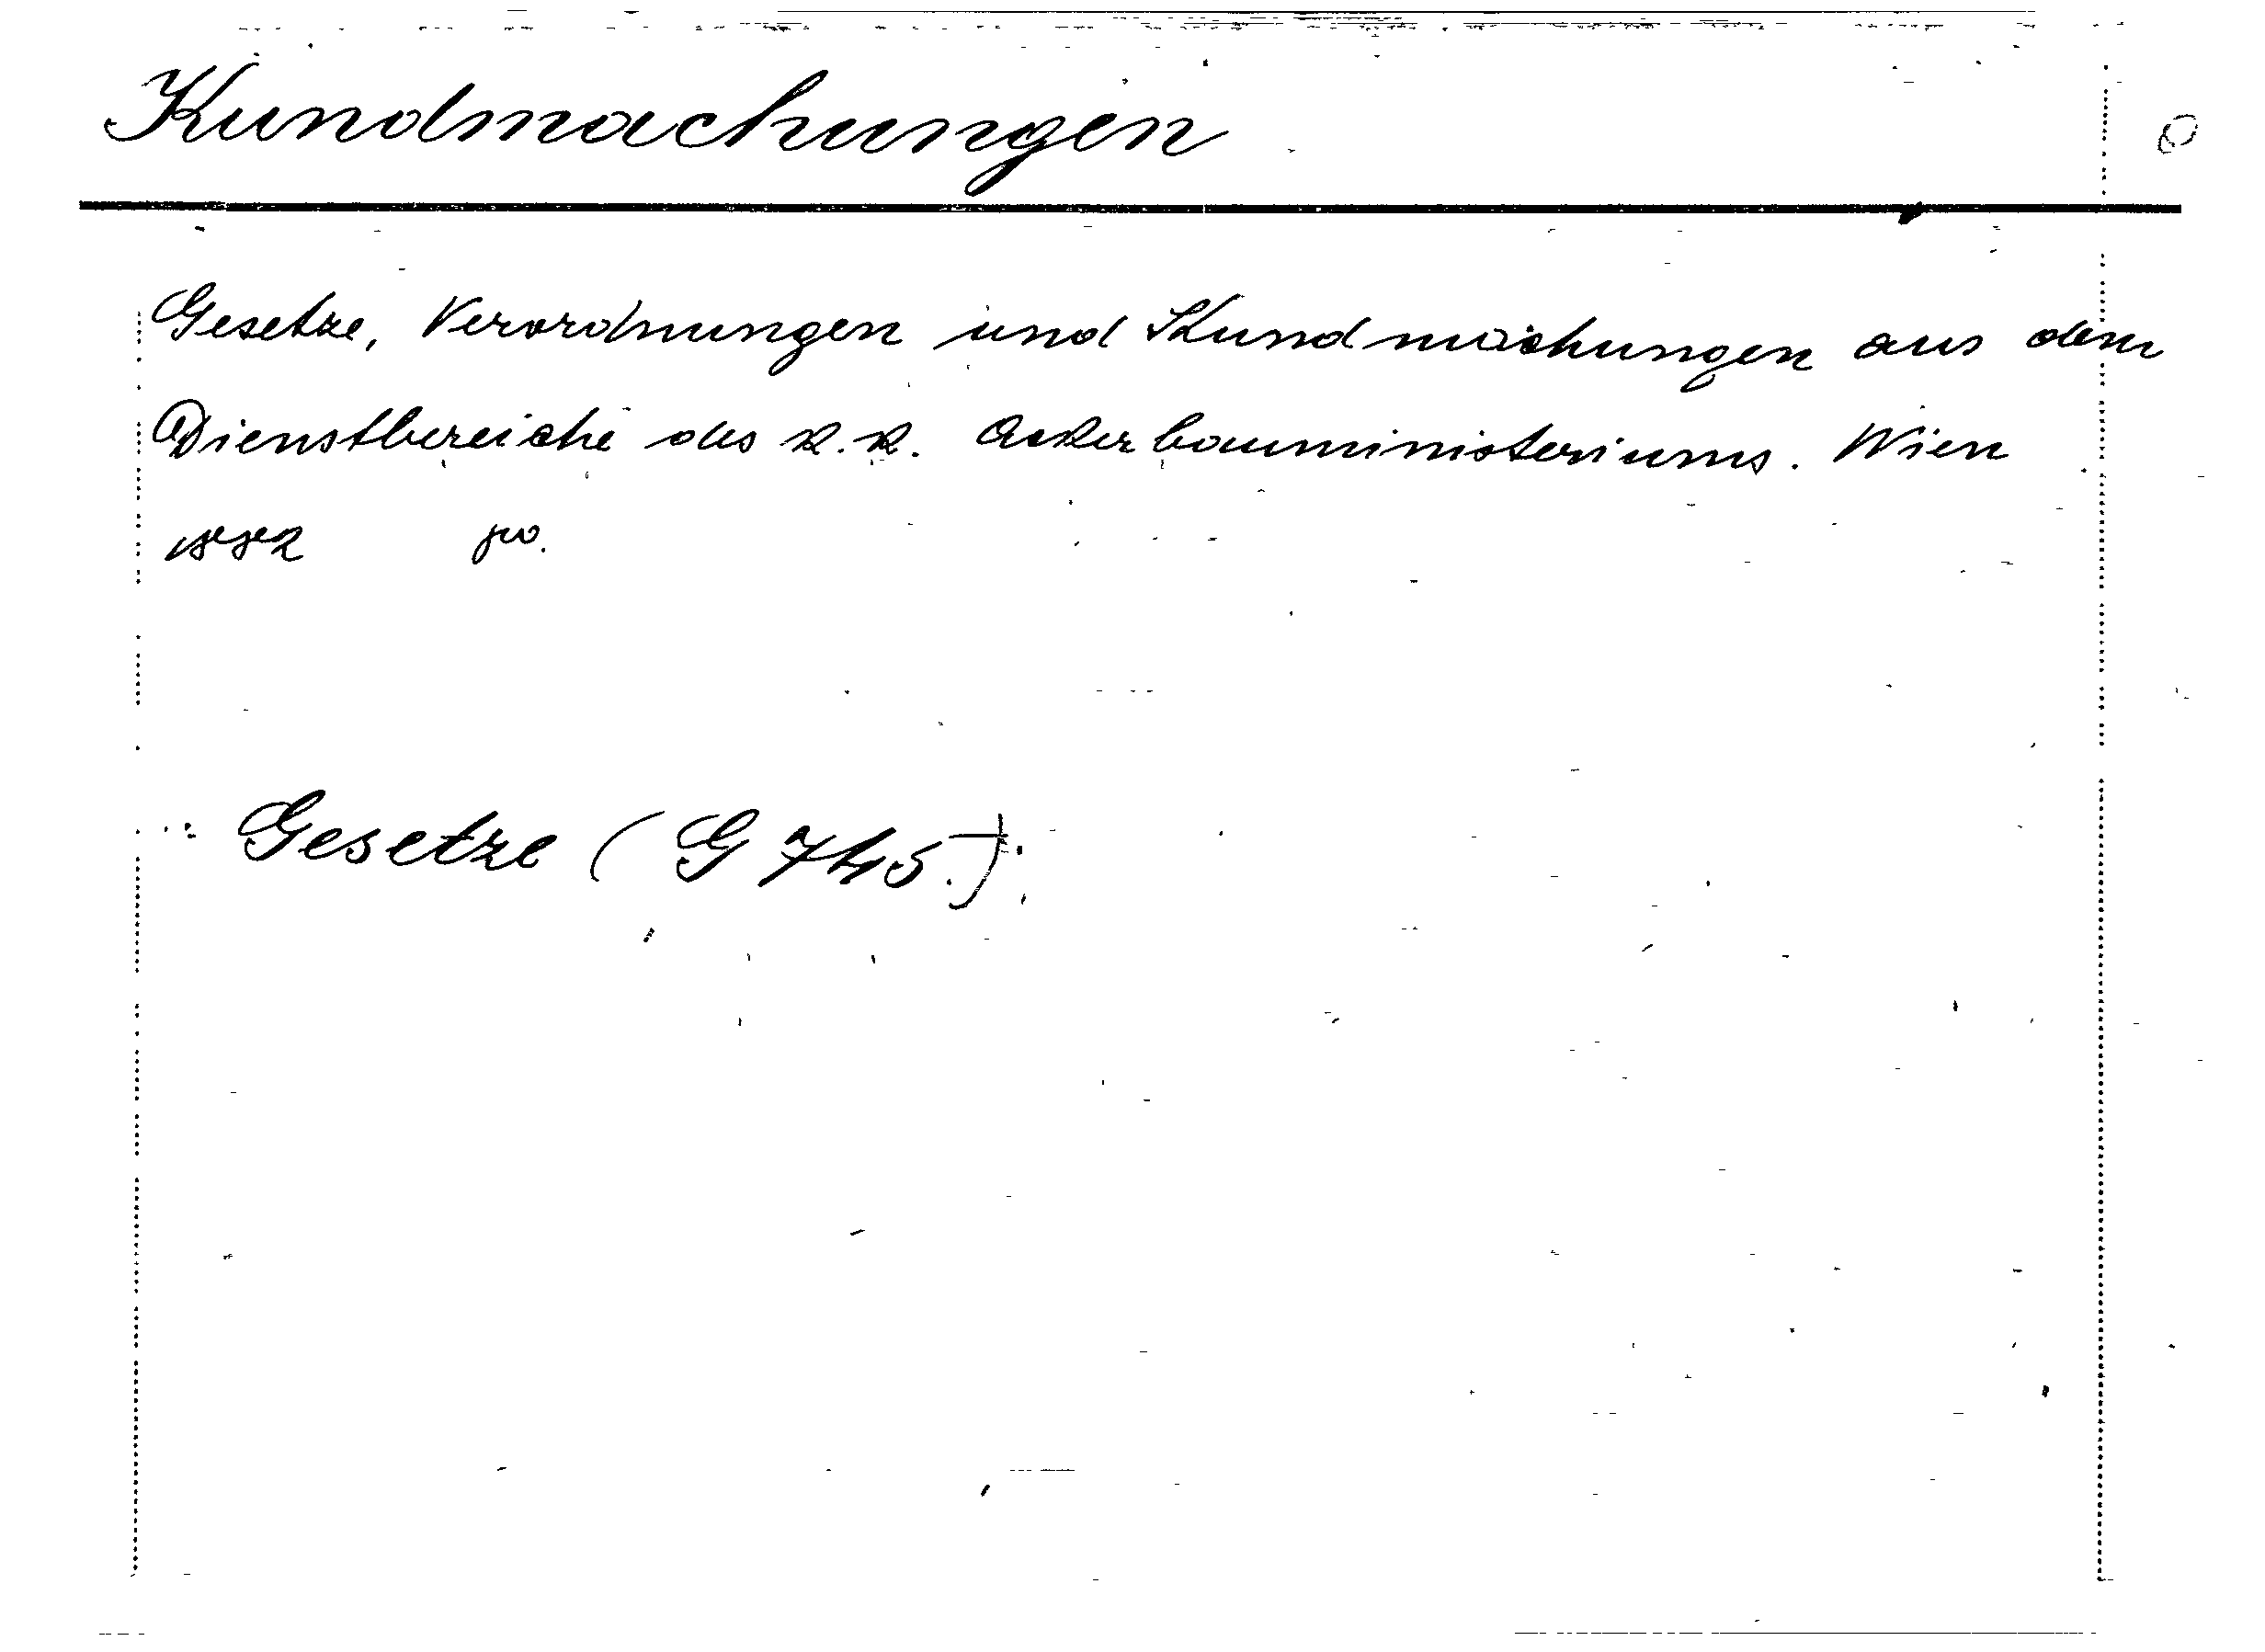 Kundmachungen
Gesetze, Verordnungen und Kundmachungen aus dem
Dienstbereiche des k.k. Ackerbauministeriums. Wien
1882
Gesetze (G 745.)